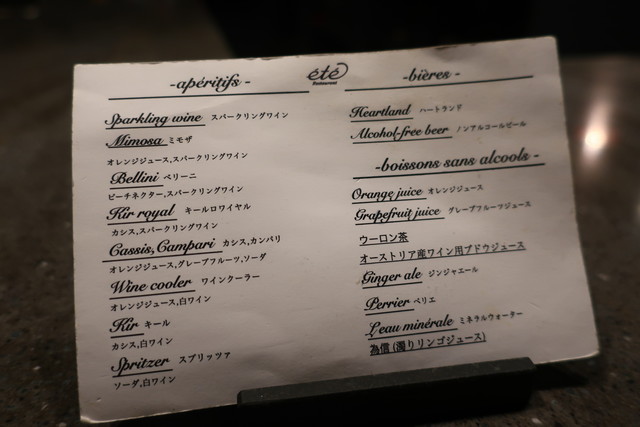 été
Restaurant
-apéritifs-
Sparkling wine スパークリングワイン
Mimosa ミモザ
オレンジジュース,スパークリングワイン
Bellini ベリーニ
ピーチネクター,スパークリングワイン
Kir royal キールロワイヤル
カシス,スパークリングワイン
Cassis,Campari カシス,カンパリ
オレンジジュース,グレープフルーツ,ソーダ
Wine cooler ワインクーラー
オレンジジュース,白ワイン
Kir キール
カシス,白ワイン
Spritzer スプリッツァ
ソーダ,白ワイン
-bières-
Heartland ハートランド
Alcohol-free beer ノンアルコールビール
-boissons sans alcools-
Orange juice オレンジジュース
Grapefruit juice グレープフルーツジュース
ウーロン茶
オーストリア産ワイン用ブドウジュース
Ginger ale ジンジャエール
Perrier ペリエ
L'eau minérale ミネラルウォーター
為信 (濁りリンゴジュース)